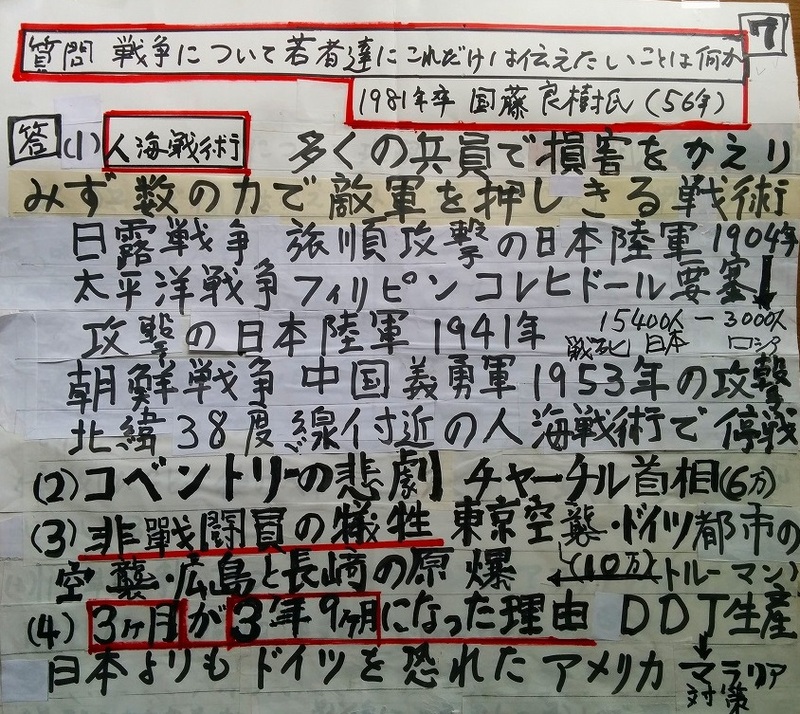 7
質問 戦争について若者達にこれだけは伝えたいことは何か
1981年卒 国藤良樹氏(56年)
答 (1) 人海戦術 多くの兵員で損害をかえり
みず数の力で敵軍を押しきる戦術
日露戦争 旅順攻撃の日本陸軍 1904年
太平洋戦争フィリピン コレヒドール要塞
攻撃の日本陸軍 1941年 15400人ー3000人
戦死 日本 ロシア
朝鮮戦争 中国義勇軍 1953年の攻撃
北緯38度線付近の人海戦術で停戦
(2) コベントリーの悲劇 チャーチル首相(6万)
(3) 非戰闘員の犠牲 東京空襲・ドイツ都市の
空襲・広島と長崎の原爆 (10万) トルーマン)
(4) 3ヶ月が3年9ヶ月になった理由 DDT生産
日本よりもドイツを恐れたアメリカ マラリア
対策